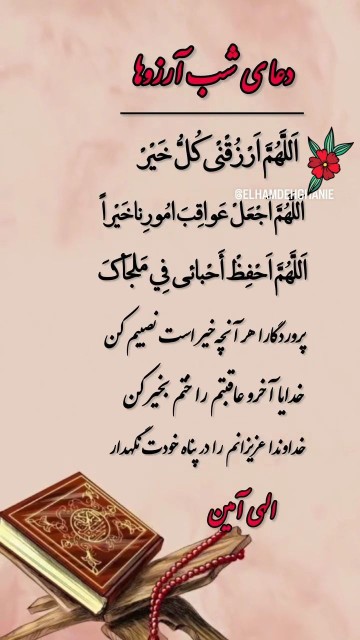 دعای شب آرزوها
اَللّهُمَّ اَرْزُقْنی کُلُّ خَیْرْ
@ELHAMDEHGHANIE
اَللّهُمَّ اجْعَلْ عَواقِبَ امُورِنا خَیْراً
اَللَّهُمَّ اَحْفِظْ أَحْبائی فِي مَلجَاکَ
پروردگارا هر آنچه خیر است نصیبم کن
خدایا آخر و عاقبتم را ختم بخیر کن
خداوندا عزیزانم را در پناه خودت نگهدار
الهی آمین